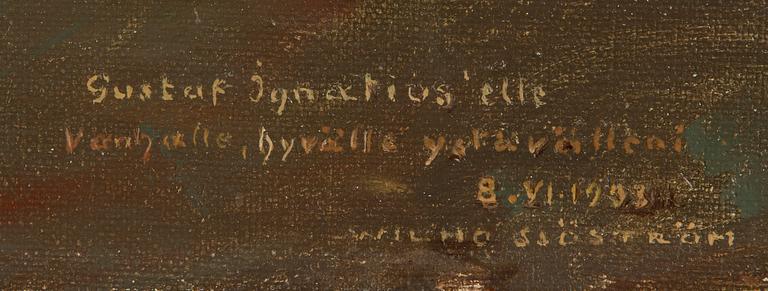 Gustaf Ignatius'elle
Vanhalle, hyvälle ystävälleni
8.VI.1933
WILHO SJÖSTRÖM